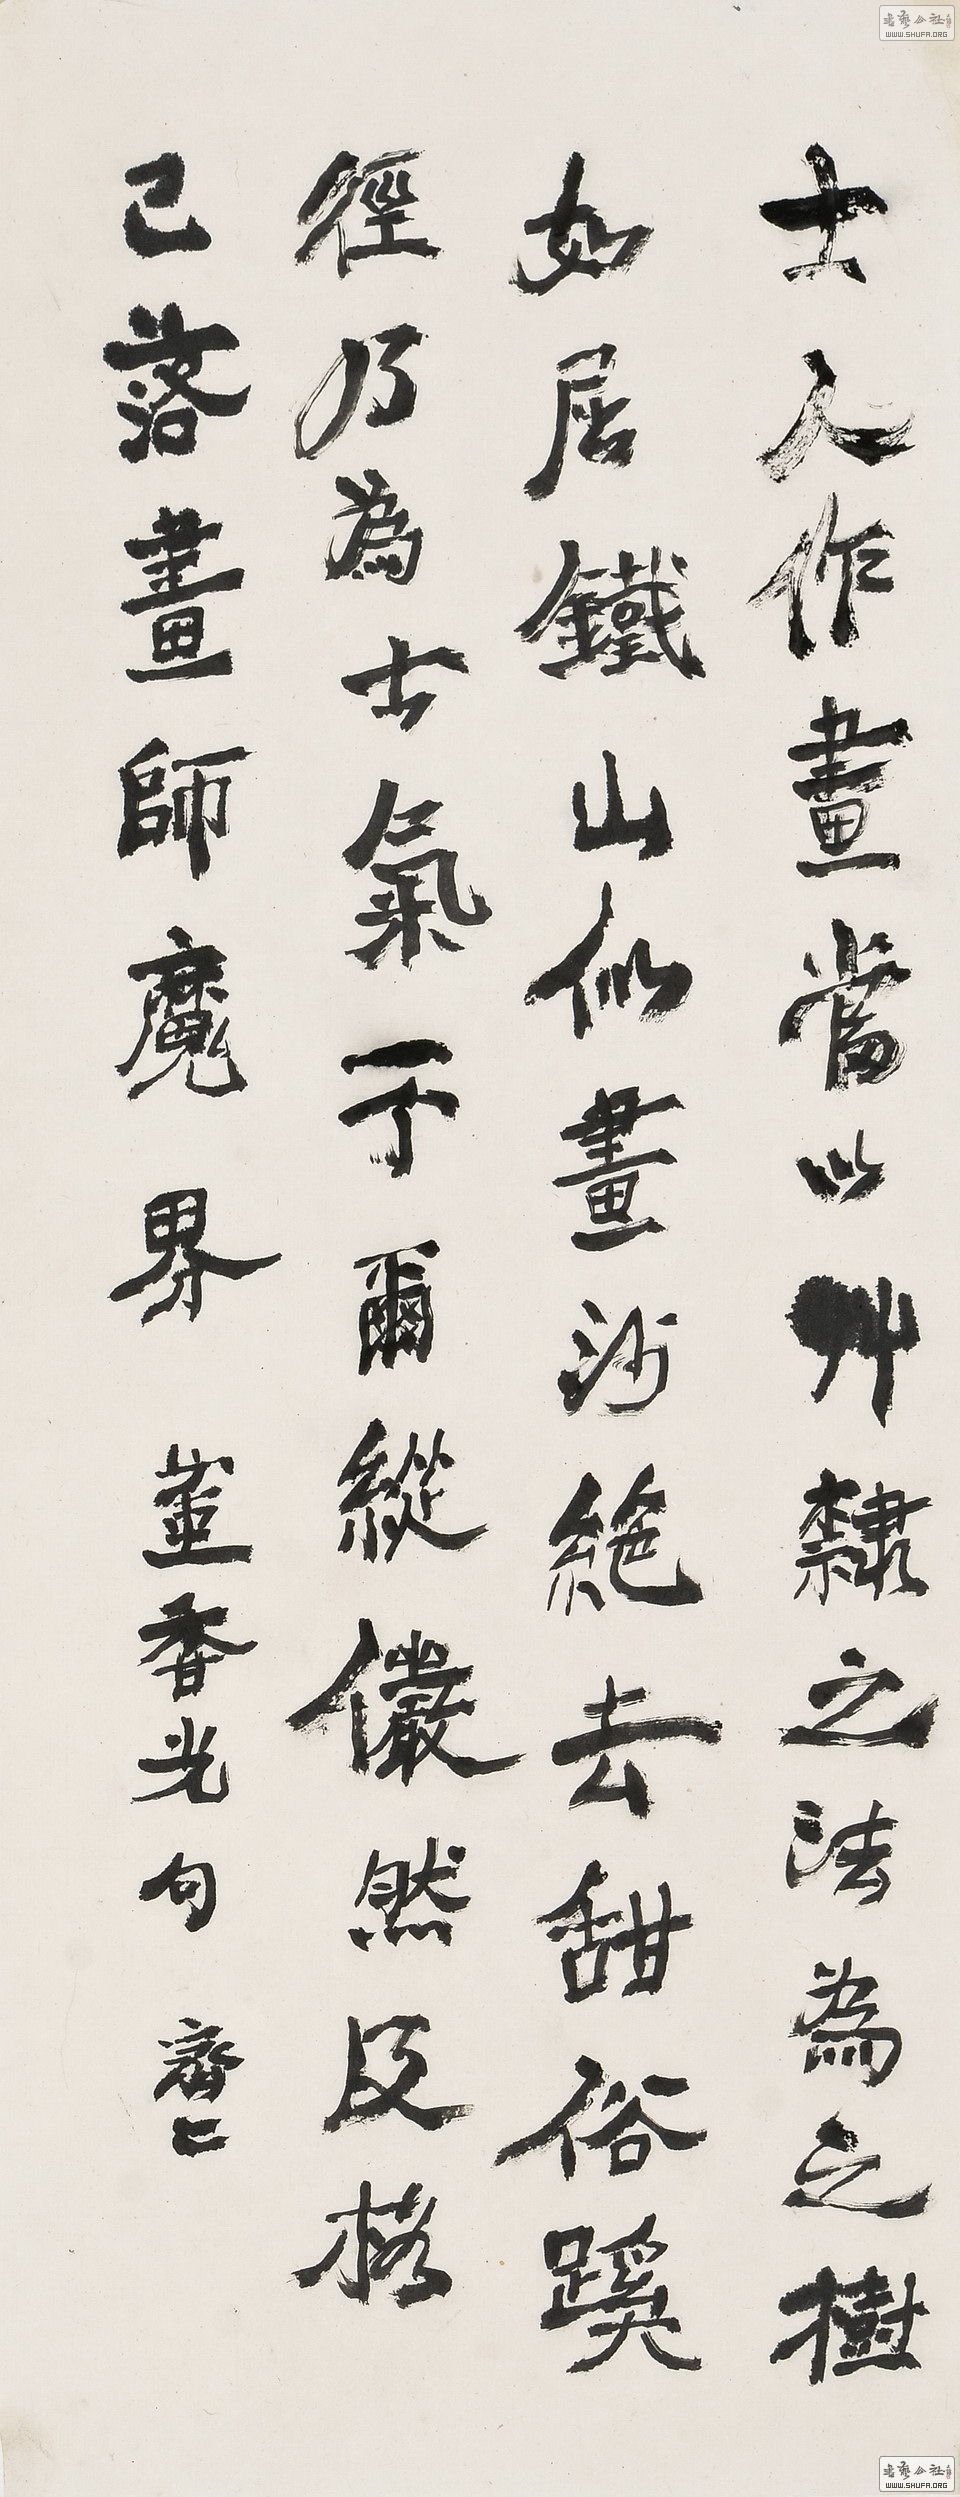 書藝公社
WWW.SHUFA.ORG
士人作畫當以艸隸之法為之樹
如屈鐵山似畫沙絕去甜俗蹊
徑乃為士氣不爾縱儼然及格
已落畫師魔界 董香光句
書藝公社
WWW.SHUFA.ORG